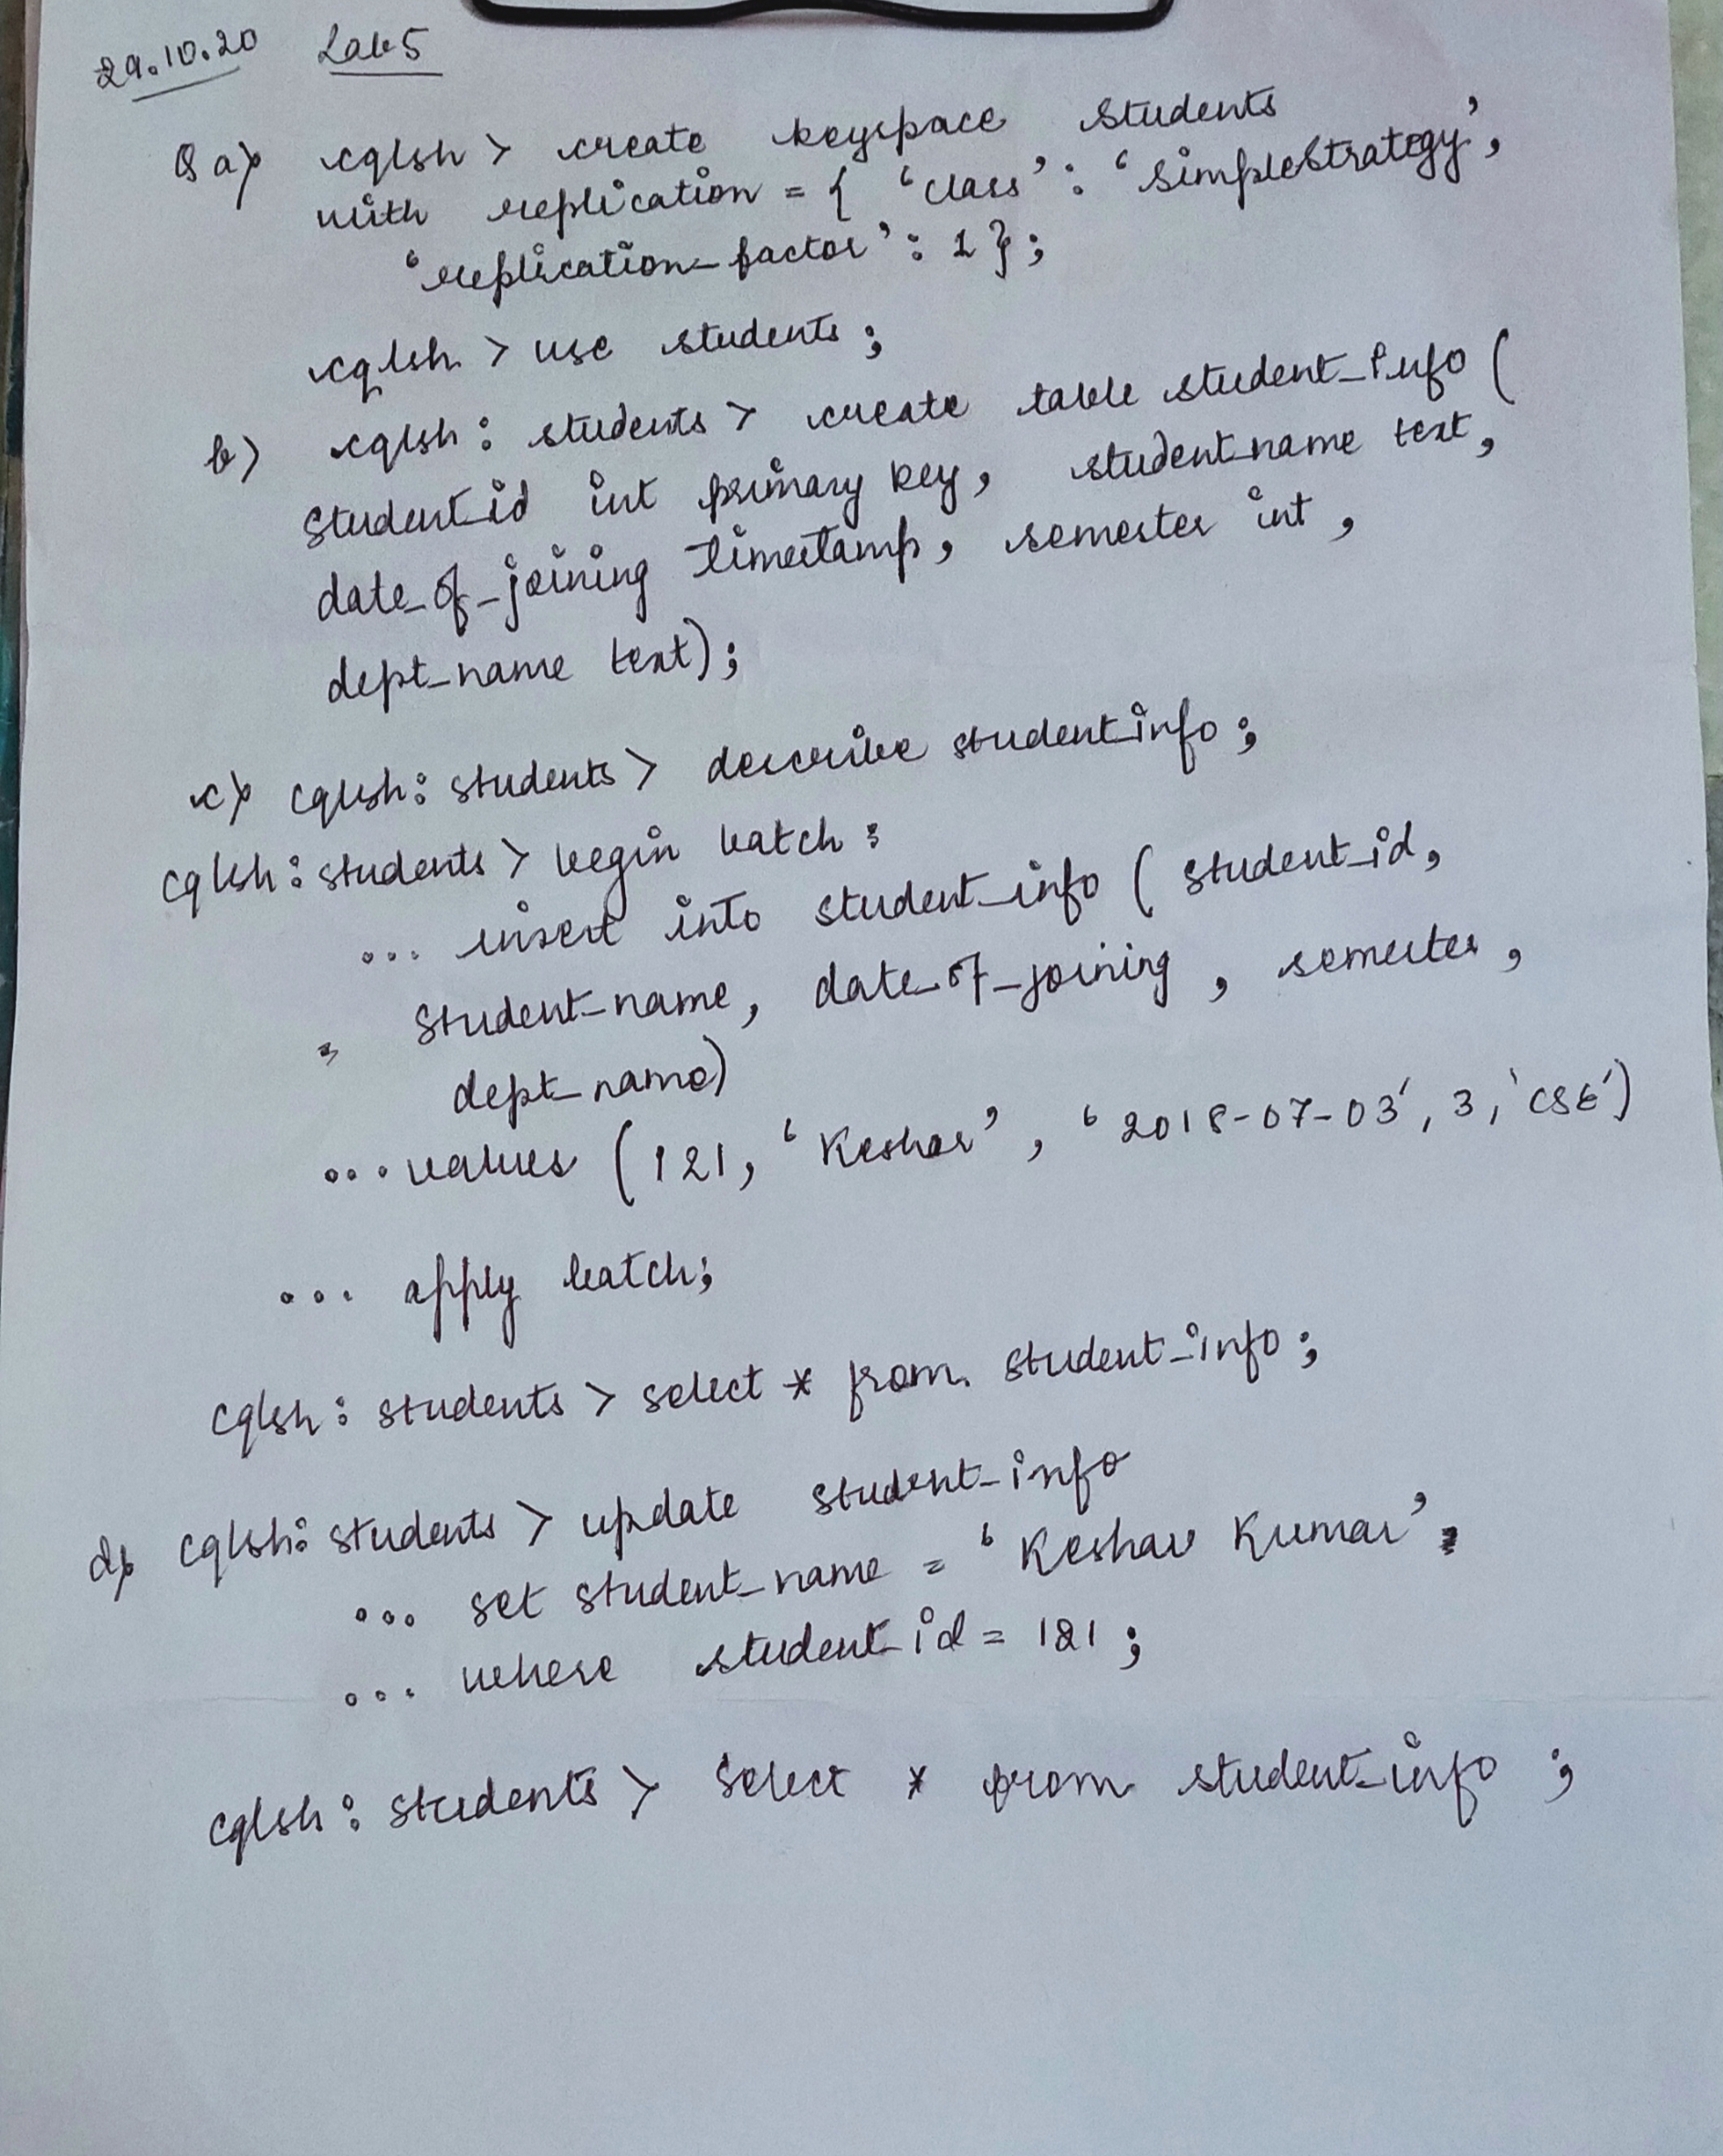 29.10.20 Lab 5
Q a) cqlsh > create keyspace Students
with replication = { 'class' : 'SimpleStrategy',
'replication_factor' : 1 };
cqlsh > use students ;
b) cqlsh : students > create table student_info (
Student_id int primary key, student_name text,
date_of_joining timestamp, semester int ,
dept_name text);
c) cqlsh : students > describe student_info ;
cqlsh : students > begin batch :
... insert into student_info ( student_id,
Student_name, date_of_joining , semester ,
dept_name)
... values ( 121, 'Keshav' , '2018-07-03', 3, 'CSE')
... apply batch;
cqlsh : students > select * from student_info ;
d) cqlsh : students > update student_info
... set student_name = 'Keshav Kumar'
... where student_id = 121 ;
cqlsh : students > Select * from student_info ;